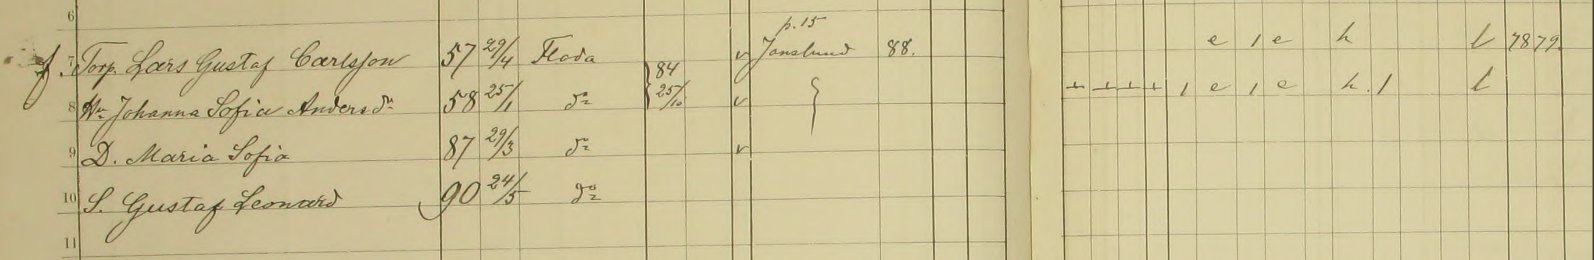 6
p. 15
7 Torp. Lars Gustaf Carlsson 57 29/4 Floda v Janslund 88. e 1 e h l 7879.
84
8 Hu Johanna Sofia Andersdr 58 25/1 do 25/10 v + + + + 1 e 1 e h. 1 l
9 D. Maria Sofia 87 29/3 do v
10 S. Gustaf Leonard 90 24/5 do
11